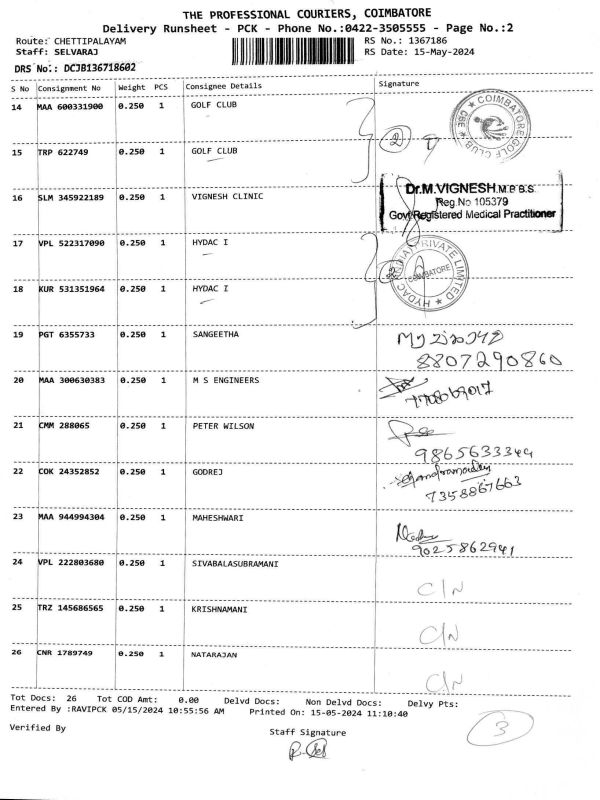 THE PROFESSIONAL COURIERS, COIMBATORE
Delivery Runsheet - PCK - Phone No.:0422-3505555 - Page No.:2
Route: CHETTIPALAYAM RS No.: 1367186
Staff: SELVARAJ RS Date: 15-May-2024
DRS No.: DCJB136718602
S No Consignment No Weight PCS Consignee Details Signature
14 MAA 600331900 0.250 1 GOLF CLUB
COIMBATORE GOLF CLUB ★ CBE ★
2
15 TRP 622749 0.250 1 GOLF CLUB
16 SLM 345922189 0.250 1 VIGNESH CLINIC
Dr.M.VIGNESH,M.B.B.S
Reg.No 105379
Govt Registered Medical Practitioner
17 VPL 522317090 0.250 1 HYDAC I
HYDAC (INDIA) PRIVATE LIMITED ★
COIMBATORE
18 KUR 531351964 0.250 1 HYDAC I
19 PGT 6355733 0.250 1 SANGEETHA
8807290860
20 MAA 300630383 0.250 1 M S ENGINEERS
21 CMM 288065 0.250 1 PETER WILSON
9865633344
22 COK 24352852 0.250 1 GODREJ
7358867663
23 MAA 944994304 0.250 1 MAHESHWARI
9025862941
24 VPL 222803680 0.250 1 SIVABALASUBRAMANI
C/N
25 TRZ 145686565 0.250 1 KRISHNAMANI
C/N
26 CNR 1789749 0.250 1 NATARAJAN
C/N
Tot Docs: 26 Tot COD Amt: 0.00 Delvd Docs: Non Delvd Docs: Delvy Pts:
Entered By :RAVIPCK 05/15/2024 10:55:56 AM Printed On: 15-05-2024 11:10:40
3
Verified By Staff Signature